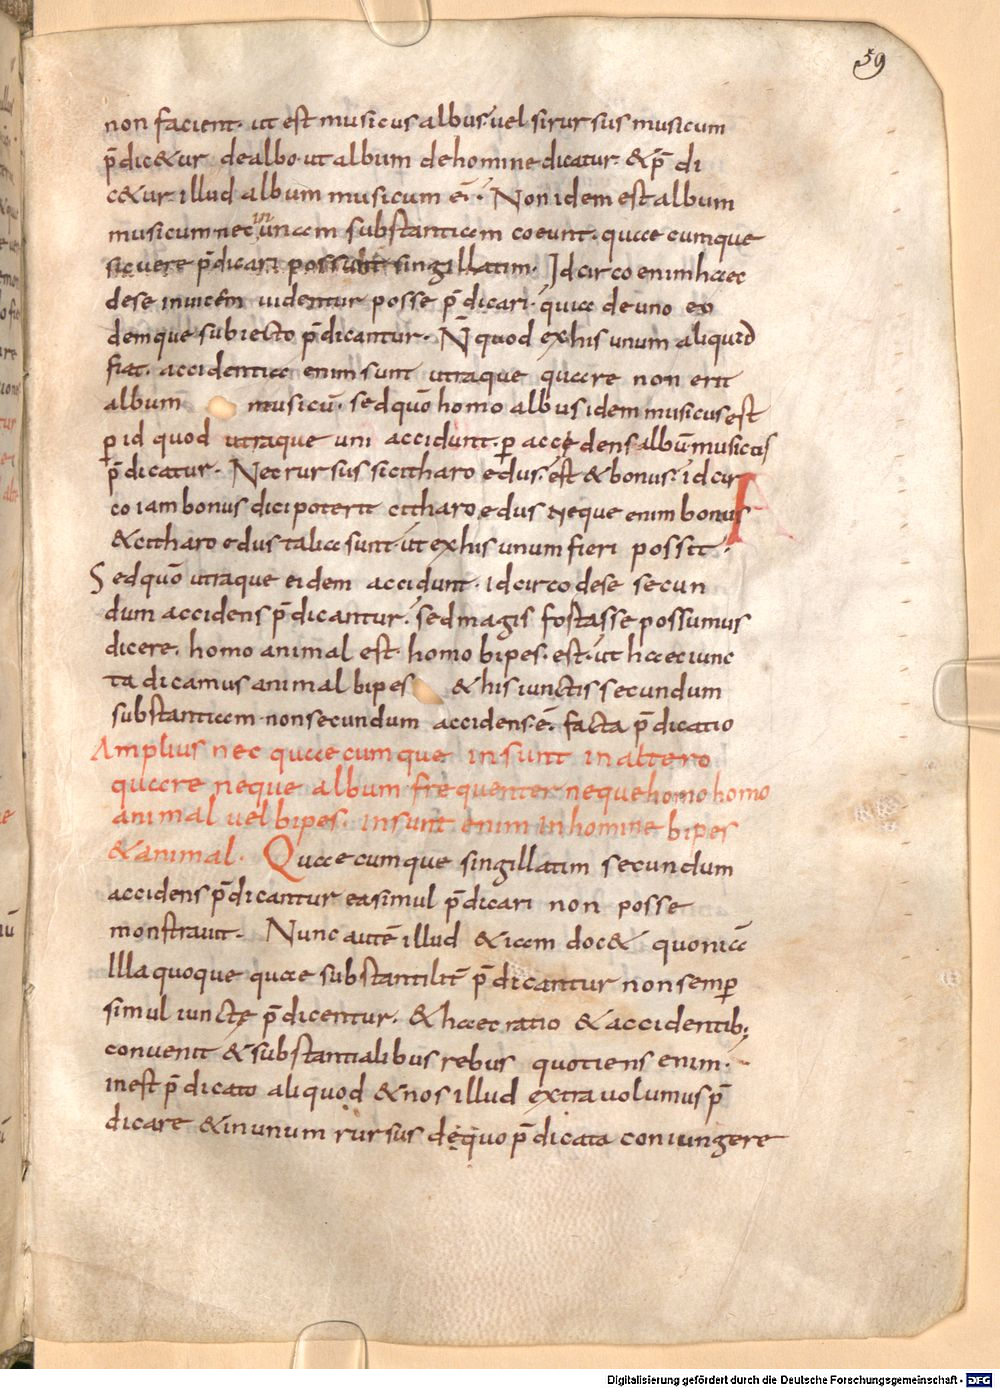 59
non facient· ut est musicus albus· uel si rursus musicum
p̄dic&ur de albo· ut album de homine dicatur· & p̄ di
c&ur illud album musicum ē· Non idem est album
musicum· nec in unam substantiam coeunt· quaecumque
sic uere p̄dicari possunt singillatim· Idcirco enim haec
de se inuicem uidentur posse p̄dicari· quia de uno eo
demque subiecto p̄dicantur· N̄ quod ex his unum aliquid
fiat· accidentia enim sunt utraque quare non erit
album musicū· sed quō homo albus idem musicus est
ꝑ id quod utraque uni accidunt· ꝑ accędens albū musicus
p̄dicatur· Nec rursus si citharoedus· est & bonus· idcir
co iam bonus dici poterit citharoedus neque enim bonus
& citharoedus talia sunt ut ex his unum fieri possit·
Sed quō utraque eidem accidunt· idcirco de se secun
dum accidens p̄dicantur· sed magis fostasse possumus
dicere· homo animal est· homo bipes· est· ut haec iunc
ta dicamus animal bipes & his iunctis secundum
substantiam· non secundum accidens· ē· facta p̄dicatio
Amplius nec quaecumque insunt in altero
quare neque album frequenter neque homo homo
animal uel bipes· insunt enim in homine bipes
& animal· Quaecumque singillatim secundum
accidens p̄dicantur ea simul p̄dicari non posse
monstrauit· Nunc autē illud &iam doc& quonia
Illa quoque quae substantilit̄ p̄dicantur non semꝑ
simul iunctę p̄dicentur· & haec ratio & accidentib;
conuenit & substantialibus rebus quotiens enim·
inest p̄dicato aliquod & nos illud extra uolumus p̄
dicare & in unum rursus dę quo p̄dicata coniungere
Digitalisierung gefördert durch die Deutsche Forschungsgemeinschaft - DFG